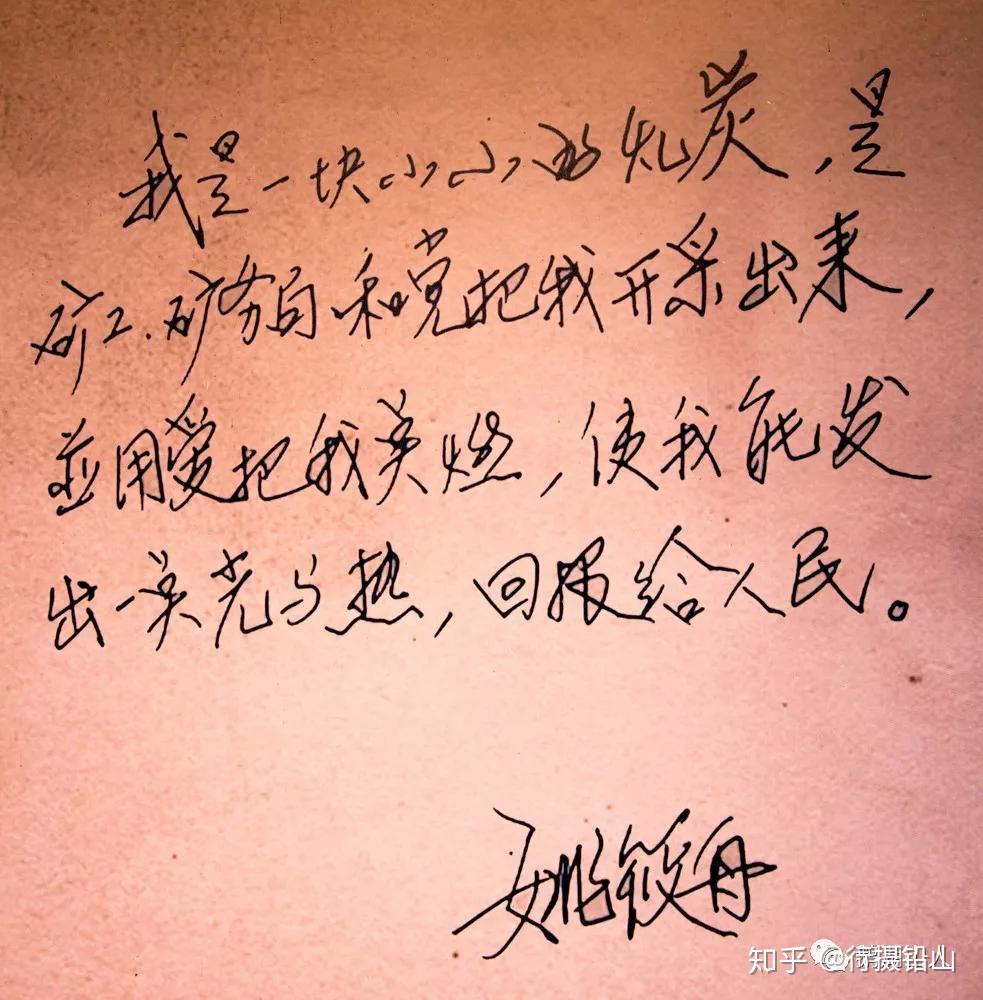 我是一块小小的煤炭，是
矿工、矿务局和党把我开采出来，
並用爱把我奌燃，使我能发
出一奌光与热，回报给人民。
姚筱舟
知乎 @行摄铅山